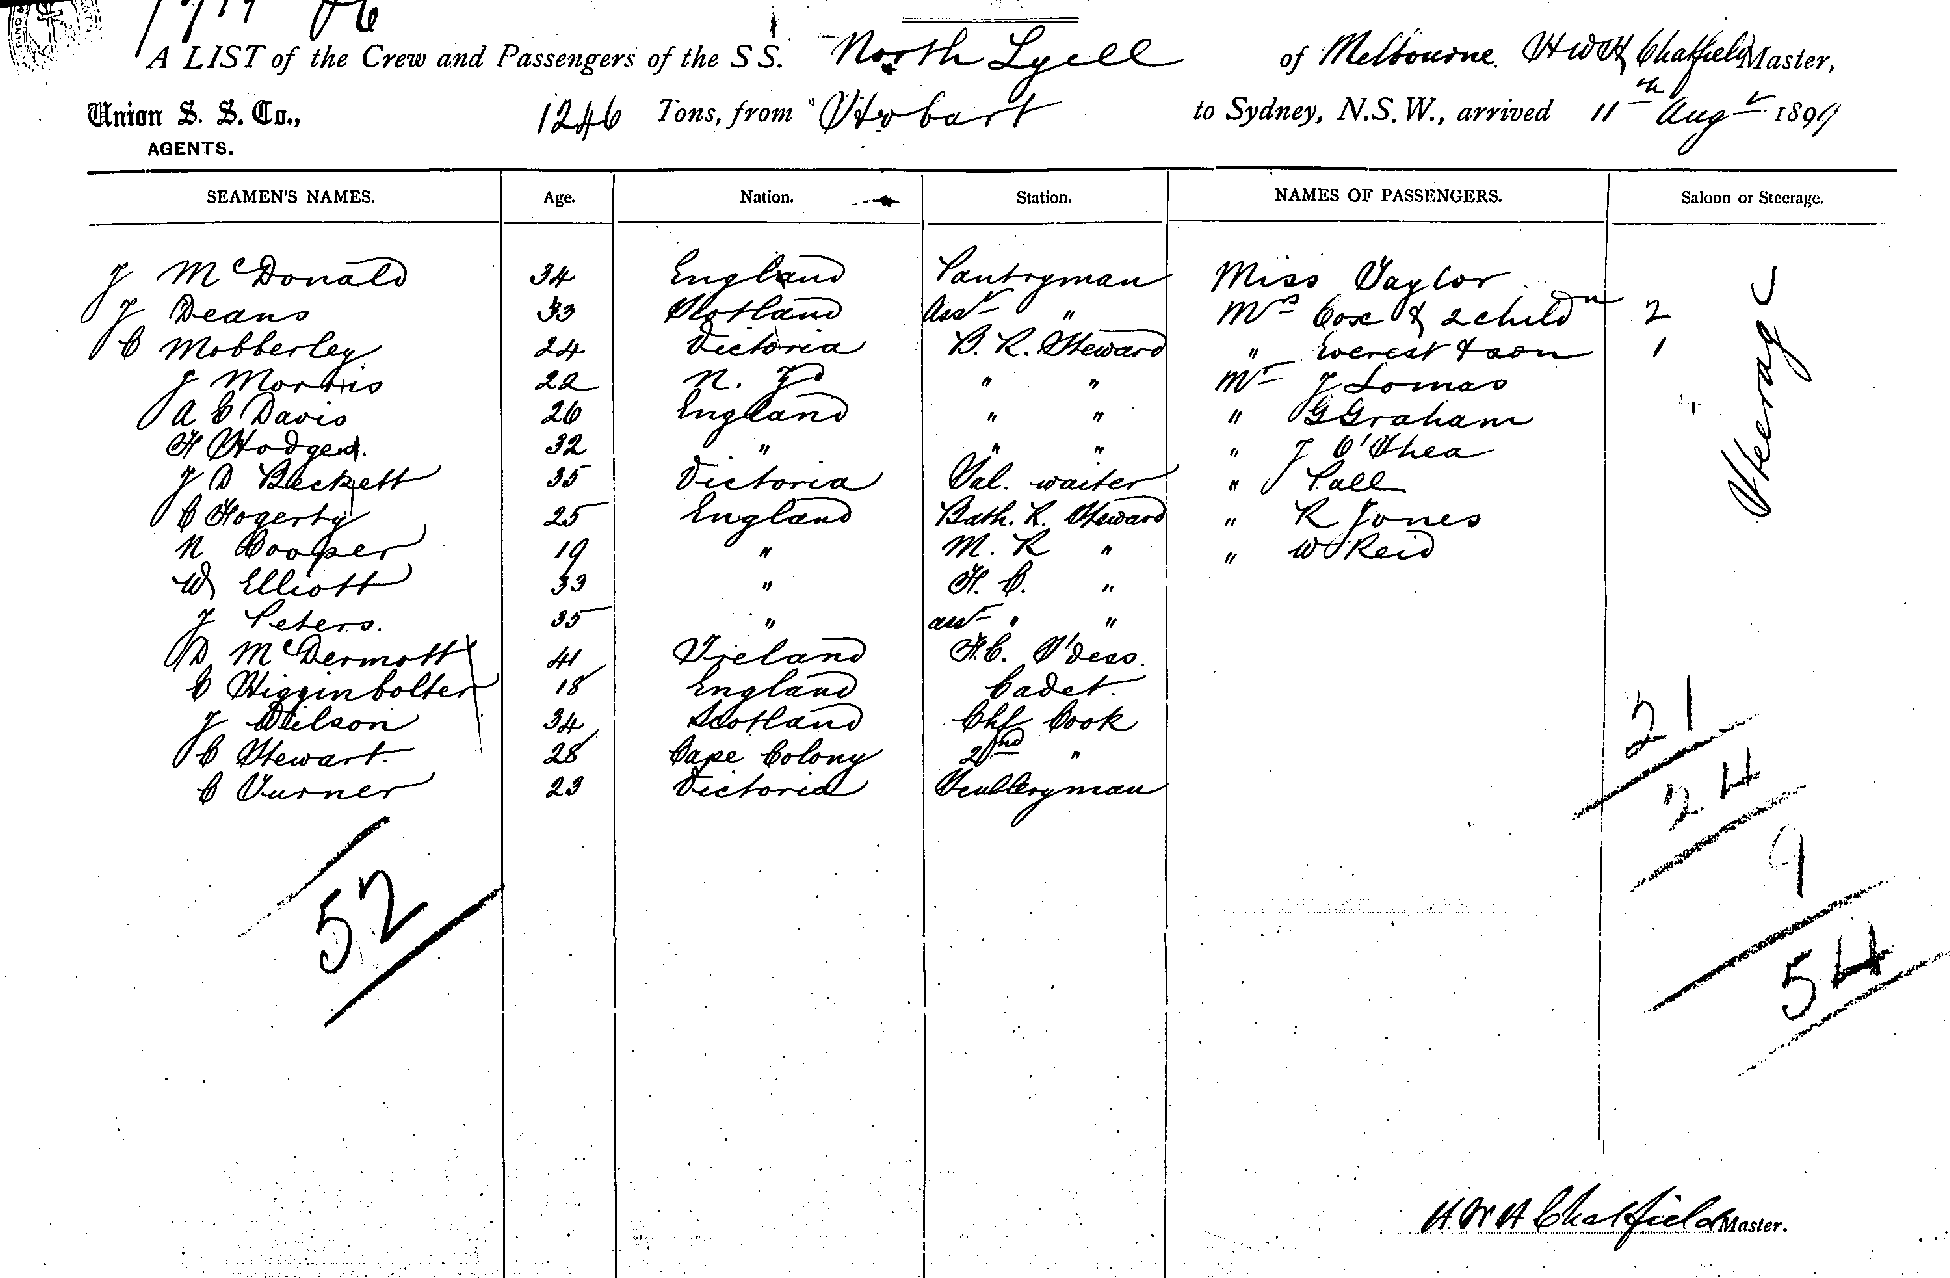 A LIST of the Crew and Passengers of the S S. North Lyell of Melbourne. H W H Chatfield Master,
Union S. S. Co., 1246 Tons, from Hobart to Sydney, N.S.W., arrived 11th Augt 1899
AGENTS.
SEAMEN'S NAMES. Age. Nation. Station. NAMES OF PASSENGERS. Saloon or Steerage.
J McDonald 34 England Pantryman Miss Taylor
J Deans 33 Scotland Asst " Mrs Cox & 2 childn 2
C Mobberley 24 Victoria B. R. Steward " Everest & son 1
J Morris 22 N. Zd " " Mr J Lomas
A C Davis 26 England " " " G Graham
F Hodges. 32 " " " " J O'Shea
J D Beckett 35 Victoria Sal. waiter " Pall
C Fogerty 25 England Bath. R. Steward " R Jones
N Cooper 19 " M. R " " W Reid
W Elliott 33 " F. C. "
J Peters. 35 " asst " "
D McDermott 41 Ireland F.C. S'dess.
C Higginbolter 18 England Cadet.
J Wilson 34 Scotland Chf Cook
C Stewart. 28 Cape Colony 2nd "
C Turner 23 Victoria Sculleryman
Steerage
21
24
9
52
54
H W H Chatfield Master.